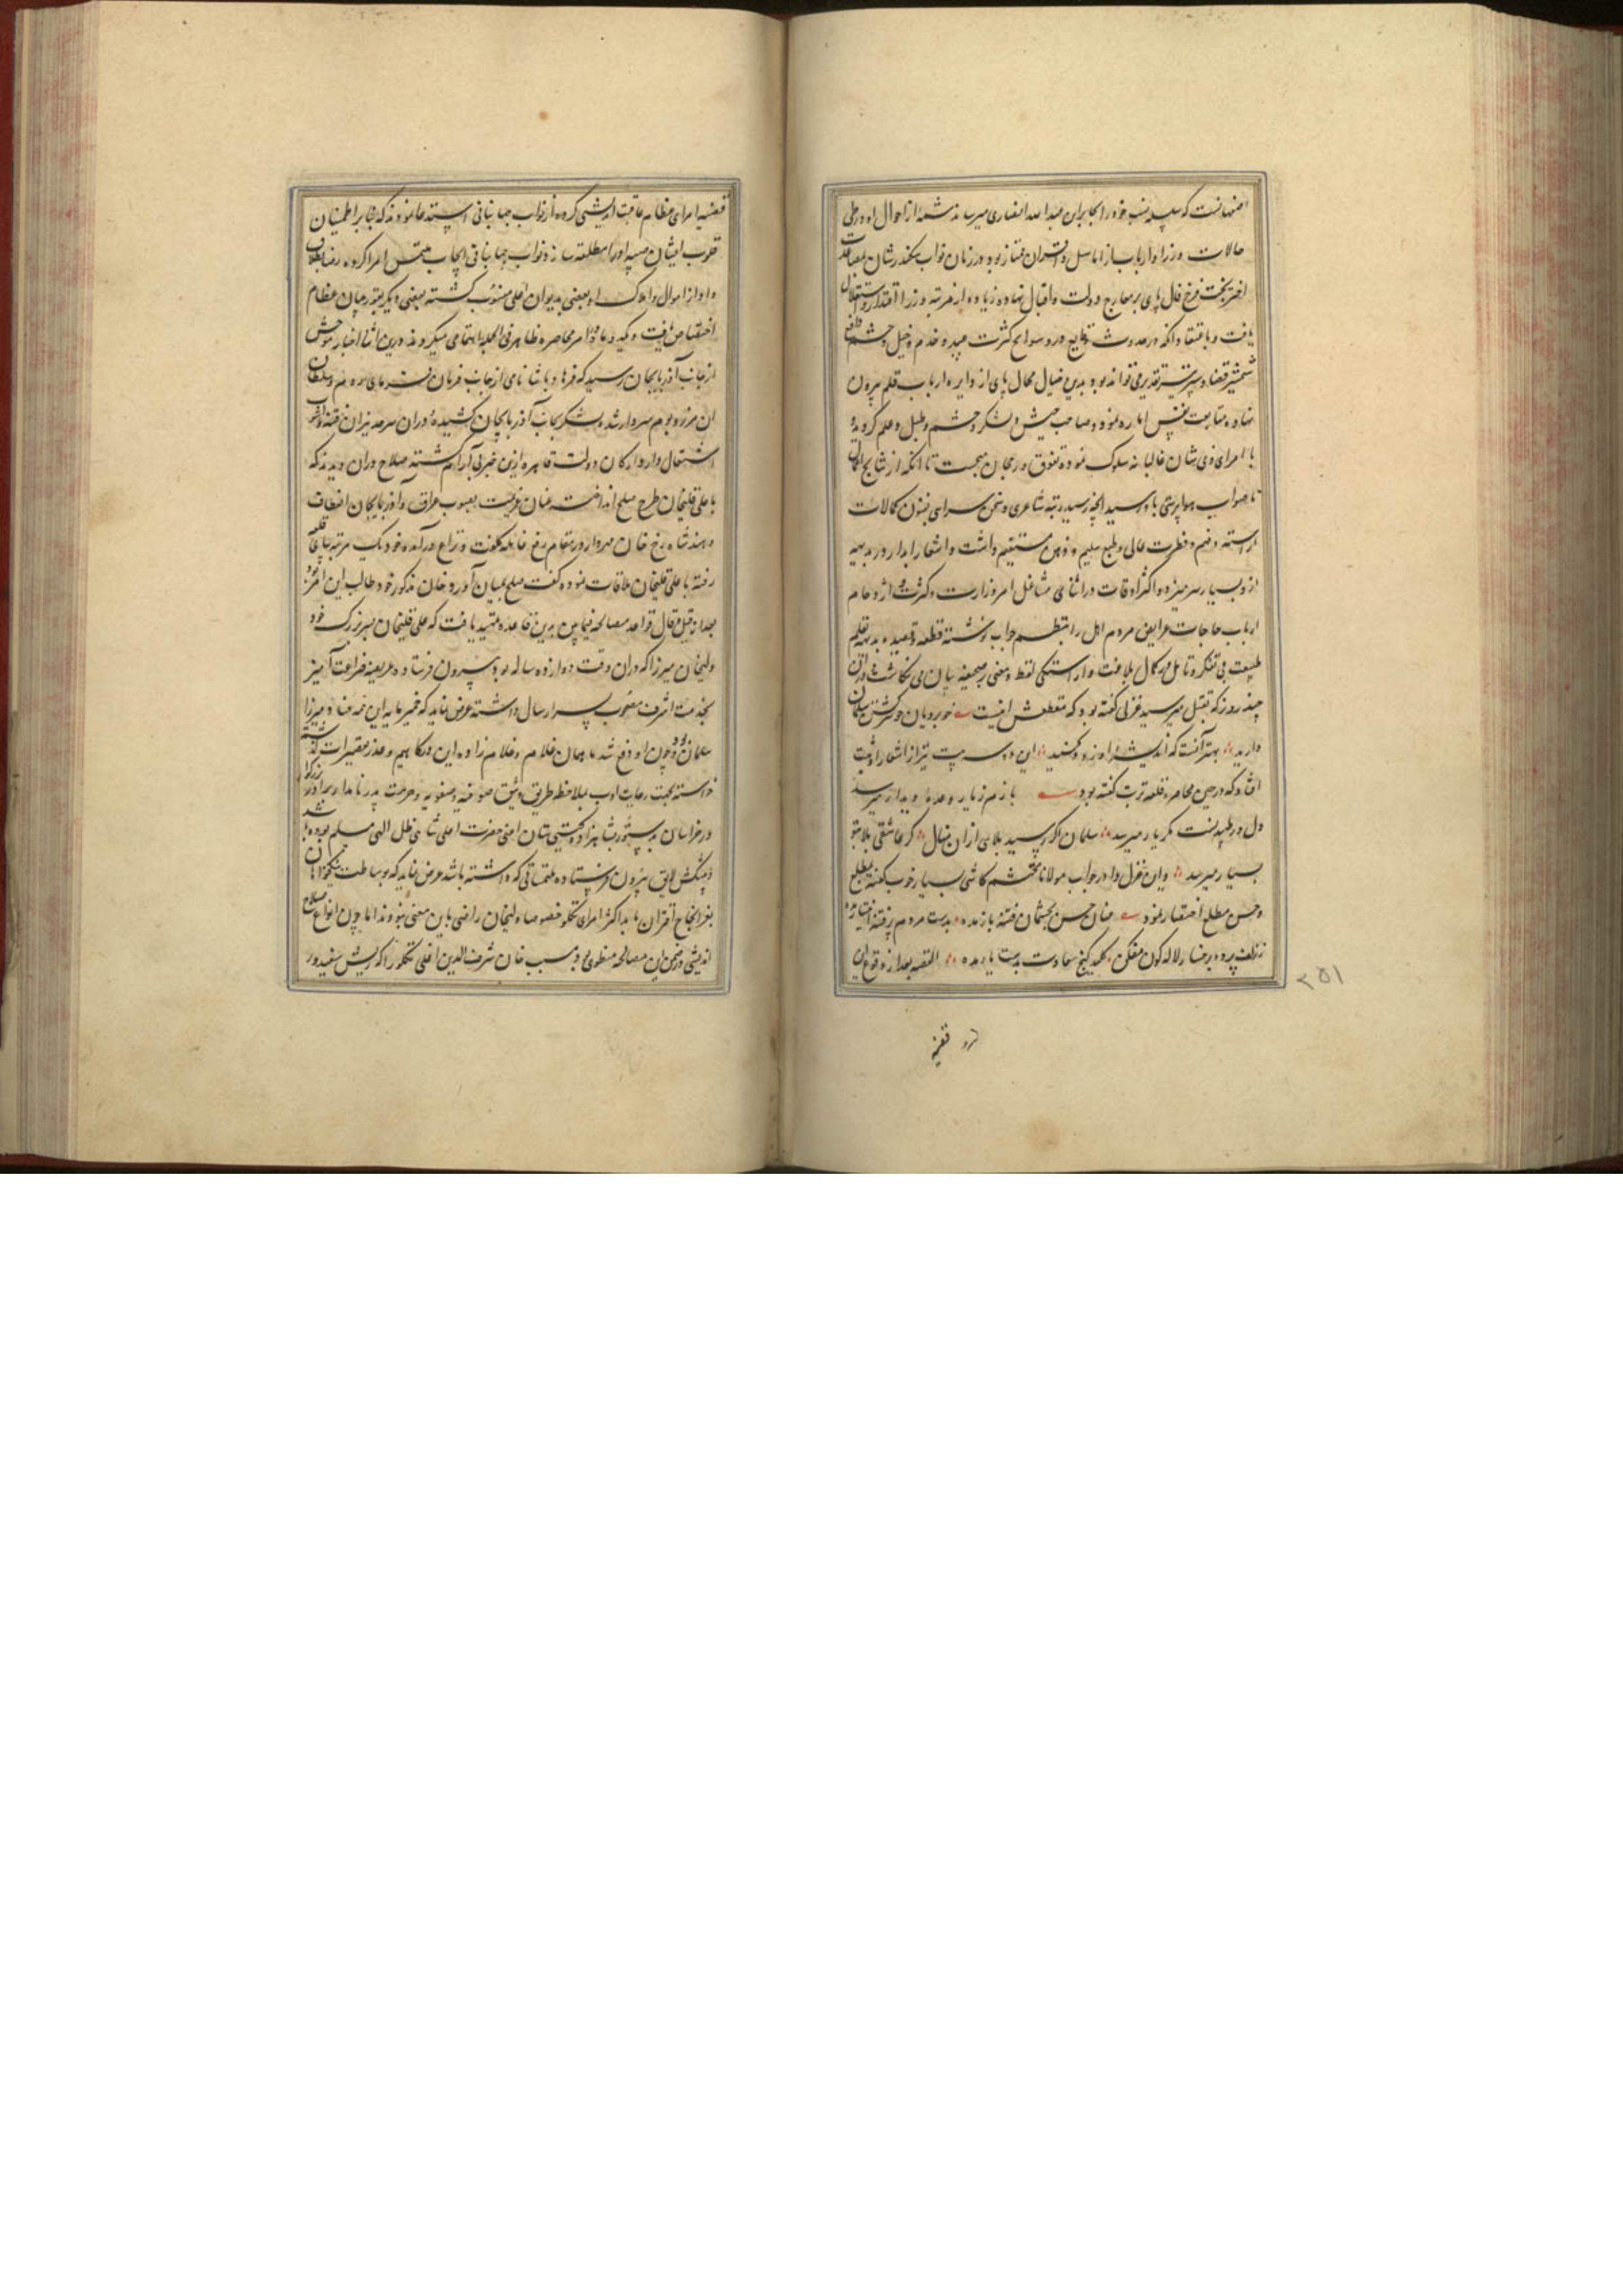 اصفهانست که سلسله نسب خود را بجابر ابن عبدالله انصاری میرساند شمه از احوال او در طی
حالات وزرا و ارباب از اماثل و اقران ممتاز بود و در زمان نواب سکندر شان بمعاضدت
اختر بخت فرخ فال پای بر معارج دولت و اقبال نهاده زیاده از مرتبه وزرا اقتدار و استقلال
یافت و باعتقاد آنکه در حدوث وقایع و ورود سوانح کثرت عبید و خدم و خیل و حشم دافع
شمشیر قضا و سپر تیر تقدیر می تواند بود بدین خیال محال پای از دایره ارباب قلم بیرون
نهاده متابعت نفس اماره نمود و صاحب جیش و لشکر و حشم و طبل و علم گردیده
با امرای ذی شان غالبانه سلوک نموده تفوق و رجحان میجست تا آنکه از نتایج افکار
ناصواب هواپرستی باو رسید آنچه رسید رتبه شاعری و سخن سرایی بفنون کمالات
آراسته و فهم و فطرت عالی و طبع سلیم و ذهن مستقیم داشت و اشعار آبدار در بدیهه
ازو بسیار سر میزد و اکثر اوقات در اثنای مشاغل امر وزارت و کثرت ازدحام
ارباب حاجات عرایض مردم اهل را بنظم جواب نوشته قطعه و قصیده بدیهه بقلم
طبیعت بی تفکر و تامل در کمال بلاغت و آراستگی لفظ و معنی بر صحیفه بیان می نگاشت در آن
چند روز که بقتل میرسید غزلی گفته بود که مقطعش اینست خوبرویان چو سر کشتن سلمان
دارید بهتر آنست که اندیشه او زود کنید این دو سه بیت نیز از اشعار او ثبت
افتاد که در حین محاصره قلعه تربت گفته بود بازم ز یار وعده دیدار میرسد
دل در طپیدنست مگر یار میرسد سلمان اگر رسید بلای از آن منال گر عاشقی بلا بتو
بسیار میرسد و این غزل را در جواب مولانا محتشم کاشی بسیار خوب گفته بمطلع
و حسن مطلع اختصار نمود عنان حسن بچشمان فتنه باز مده بدست مردم پر فتنه اختیار مده
ز زلف پرده بر رخسار لاله گون مفکن کلید گنج سعادت بدست مار مده القصه بعد از وقوع این
۲۵۱
قضیه
قضیه امرای عظام عاقبت اندیشی کرده از نواب جهانبانی استدعا نمودند که بنابر اطمینان
قلوب ایشان میرزا را مطلقه سازند نواب جهانبانی ایجاب ملتمس امرا کرده
و او از اموال و املاک او بعضی بدیوان اعلی منسوب گشته بعضی دیگر بقورچیان عظام
اختصاص یافت و گیر و دار امر محاصره ظاهر فی الجمله اهتمامی میکردند درین اثنا اخبار موحش
از جانب آذربایجان رسید که فرهاد پاشا نامی از جانب فرمان فرمای روم و سلطان
آن مرز و بوم سردار شده لشکر بجانب آذربایجان کشیده و در آن سرحد نیران فتنه و آشوب
اشتعال دارد ارکان دولت قاهره ازین خبر بی آرام گشته صلاح در آن دیدند که
با علی قلیخان طرح صلح انداخته عنان عزیمت بصوب عراق و آذربایجان انعطاف
دهند شاهرخ خان مهردار در مقام رفع غایله کلفت و نزاع درآمده خود یک مرتبه بپای قلعه
رفته با علی قلیخان ملاقات نموده گفت صلح بمیان آورد خان مذکور خود طالب این امر بود
بعد از قیل و قال قواعد مصالحه فیمابین بدین قاعده تمهید یافت که علی قلیخان پسر بزرگ خود
ولیخان میرزا که در آن وقت دوازده ساله بود بیرون فرستاده عریضه ضراعت آمیز
بخدمت اشرف مصحوب پسر ارسال داشته عرض نماید که خمیر مایه این همه فساد میرزا
سلمان بود و چون او دفع شد ما همان غلام و غلام زاده این درگاهیم و عذر تقصیرات گذشته
خواسته بجهت رعایت ادب بملاحظه طریق وثیق صوفیه و صفویه و حرمت پدر نامدار برادر بزرگوار
در خراسان بدستور شاهزاده گیتی ستان اعنی حضرت اعلی شاهی ظل الهی مسلم بوده باشد
و پیشکش لایق بیرون فرستاده ملتمساتی که داشته باشد عرض نماید که بوساطت نیکخواهان
بعز انجاح اقتران یابد اکثر امرای تکلو خصوصا ولیخان راضی باین معنی نبودند اما چون انواع صلاح
اندیشی در ضمن این مصالحه منظوی بود مسیب خان شرف الدین اغلی تکلو را که ریش سفید و